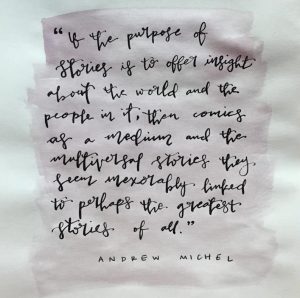 "If the purpose of
stories is to offer insight
about the world and the
people in it, then comics
as a medium and the
multiversal stories they
seem inexorably linked
to perhaps the greatest
stories of all."
ANDREW MICHEL